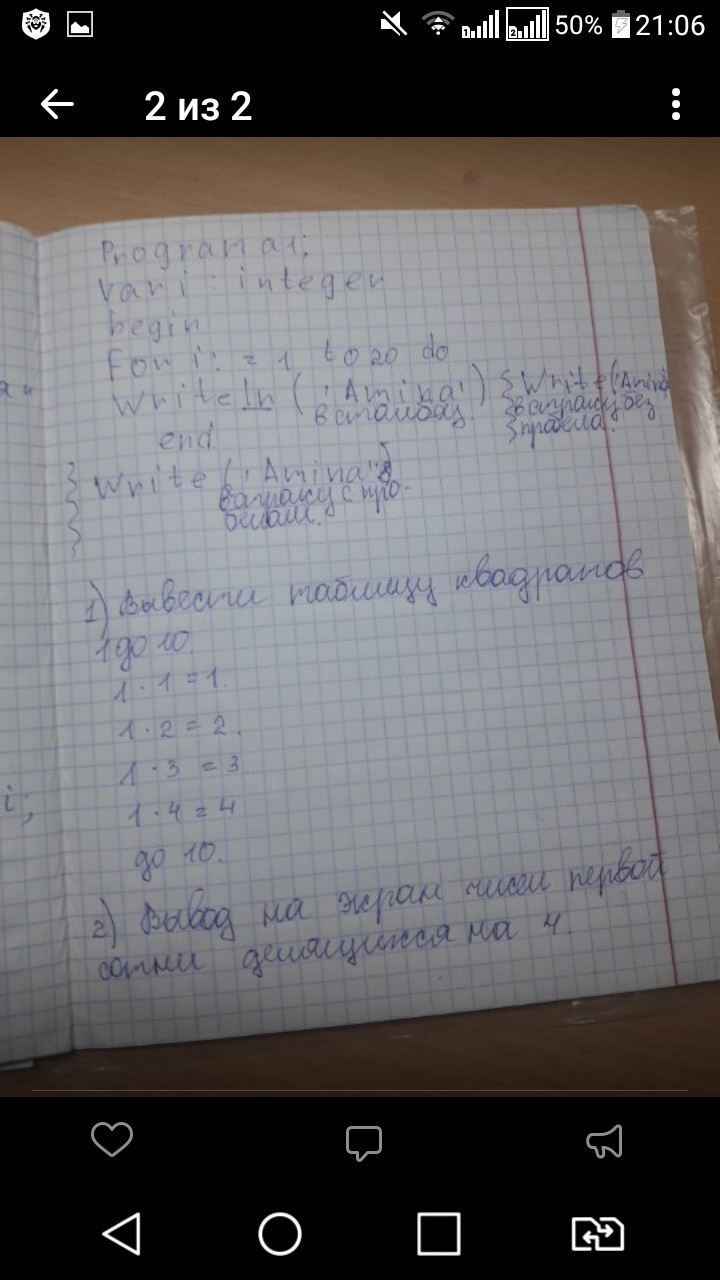 50% 21:06
2 из 2
Program a1;
var i : integer
begin
For i: = 1 to 20 do
Writeln ('Amina') {Write('Amina
в столбец {в строку без
end {пробела.
{ Write ('Amina')
в строку с про-
белом.
1) Вывести таблицу квадратов
1 до 10
1 · 1 = 1.
1 · 2 = 2.
1 · 3 = 3
1 · 4 = 4
до 10.
i;
2) Вывод на экран чисел первой
сотни делящихся на 4.